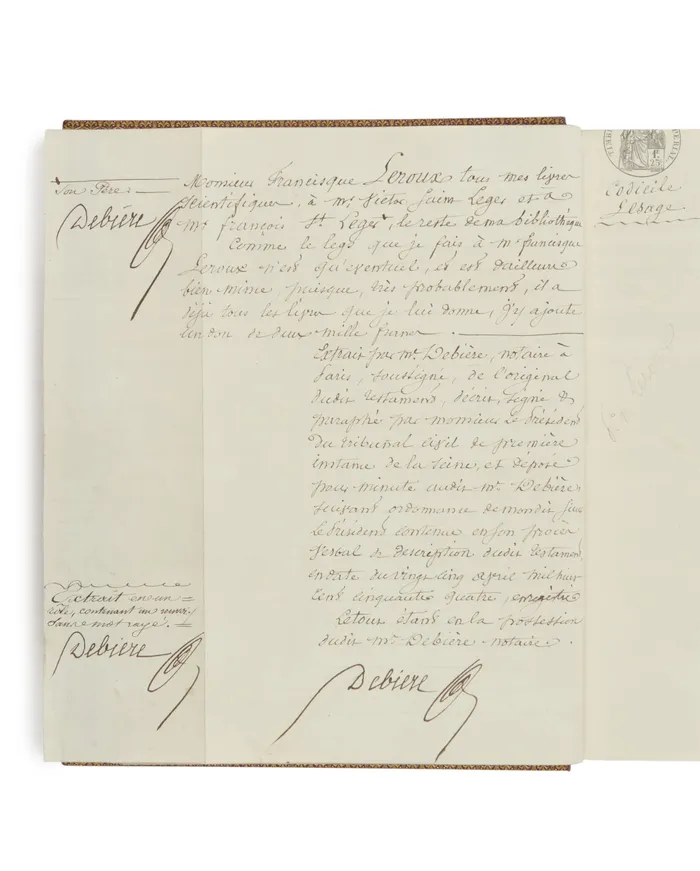 Son Père
Debière
Monsieur Francisque Leroux tous mes livres
scientifiques, à mr Victor Saint Leger et à
mr françois St Leger, le reste de ma bibliothèque
Comme le legs que je fais à mr francisque
Leroux n'est qu'eventuel, et est d'ailleurs
bien minime puisque, très probablement, il a
déja tous les livres que je lui donne, j'y ajoute
un don de deux mille francs.
Extrait par mr Debière, notaire à
Paris, soussigné, de l'original
dudit testament, décrit, signé &
paraphé par monsieur le Président
du tribunal civil de première
instance de la Seine, et déposé
pour minute audit mr Debière
suivant ordonnance de mondit Sieur
le Président contenue en son procès
verbal de description dudit testament
en date du vingt cinq avril mil huit
cent cinquante quatre, enregistré
Le tout étant en la possession
dudit mr Debière notaire.
Debière
Extrait en un
rôle, contenant un renvoi
sans mot rayé.
Debière
Codicile
Lesage.